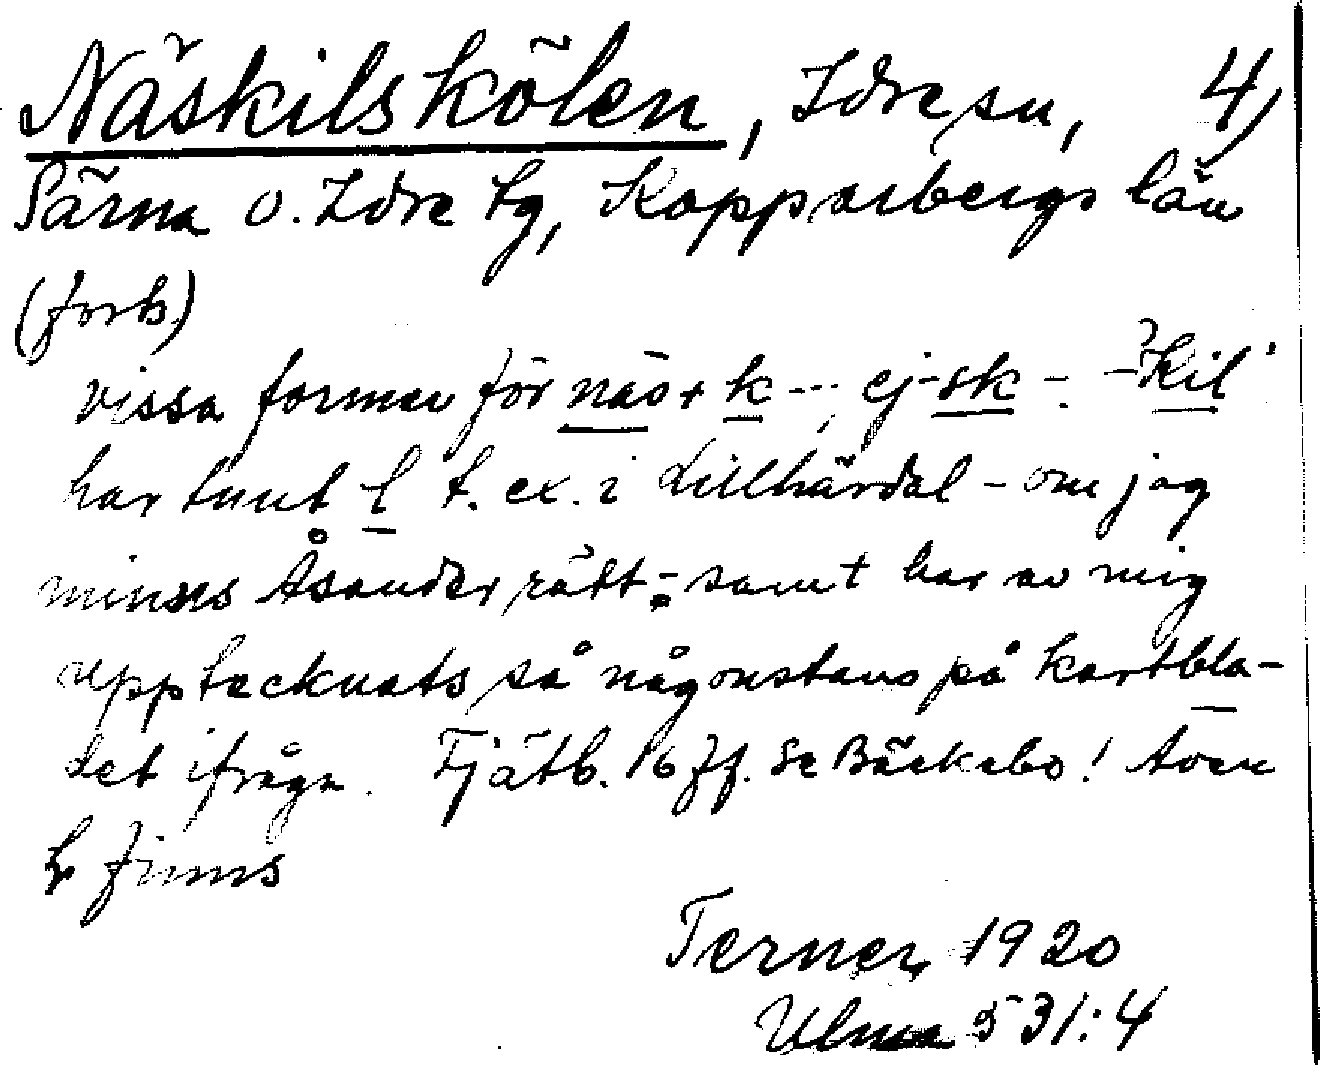 Näskilskölen, Idre sn, 4)
Särna o. Idre tg, Kopparbergs län
(forts)
vissa former för näs + k - - -; ej -sk - . - ?kil
har tunt l t. ex. i Lillhärdal - om jag
minses Åsander rätt - ; samt har av mig
upptecknats så någonstans på kartbla-
det ifråga. Fjätb. 16 ff. Se Bäckebo! Även
finns
Terner, 1920
Ulma 531:4